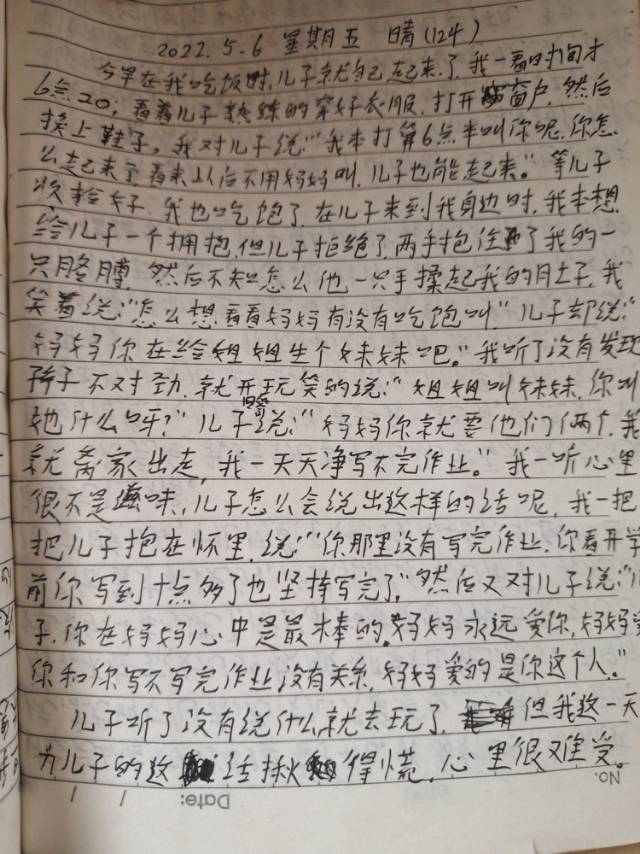 2022.5.6 星期五 晴(124)
今早在我吃饭时,儿子就自己起来了,我一看时间才
6点20,看着儿子熟练的穿好衣服,打开窗户,然后
换上鞋子,我对儿子说:"我本打算6点半叫你呢,你怎
么起来了,看来以后不用妈妈叫,儿子也能起来。"等儿子
收拾好,我也吃饱了,在儿子来到我身边时,我本想
给儿子一个拥抱,但儿子拒绝了,两手抱住了我的一
只胳膊,然后不知怎么他一只手揉起我的肚子,我
笑着说:"怎么想看看妈妈有没有吃饱叫"儿子却说:"
妈妈你在给姐姐生个妹妹吧。"我听了没有发现
孩子不对劲,就开玩笑的说:"姐姐叫妹妹,你叫
她什么呀?"儿子说:"妈妈你就要他们俩个,我
就离家出走,我一天天净写不完作业。"我一听心里
很不是滋味,儿子怎么会说出这样的话呢,我一把
把儿子抱在怀里,说:"你那里没有写完作业,你看开学
前你写到十点多了也坚持写完了,"然后又对儿子说:"
子,你在妈妈心中是最棒的,妈妈永远爱你,妈妈
你和你写不写完作业没有关系,妈妈爱的是你这个人。"
儿子听了没有说什么,就去玩了,但我这一天
为儿子的这话揪得慌,心里很难受。
No.
Date: